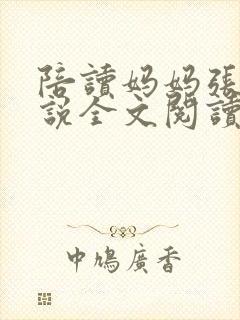 陪讀妈妈張
說全文閱讀
中鳩廣香